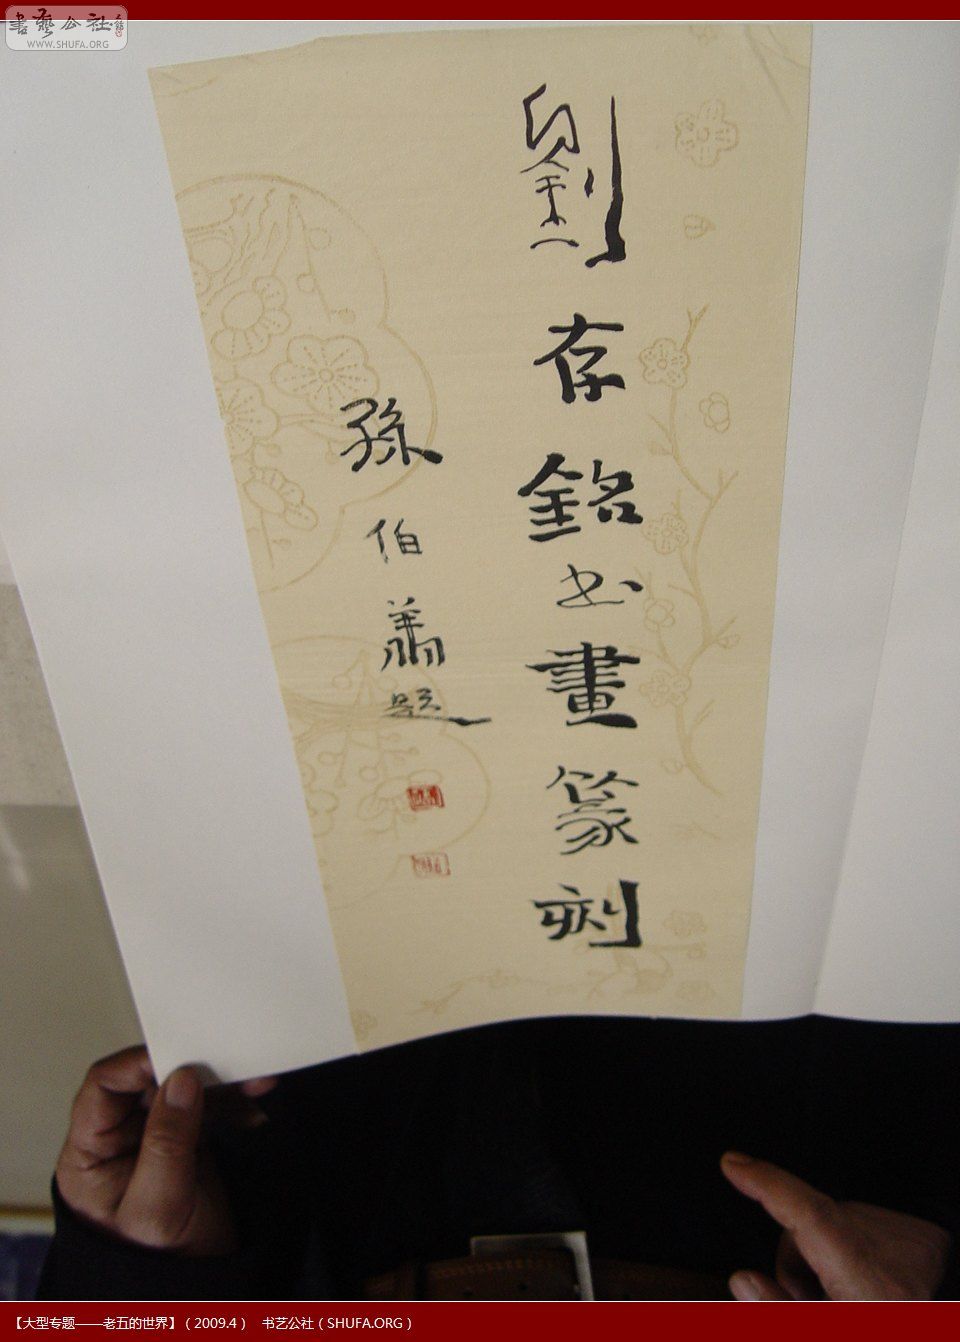 書藝公社
WWW.SHUFA.ORG
劉存銘书畫篆刻
孫伯翔題
【大型专题——老五的世界】（2009.4） 书艺公社（SHUFA.ORG）